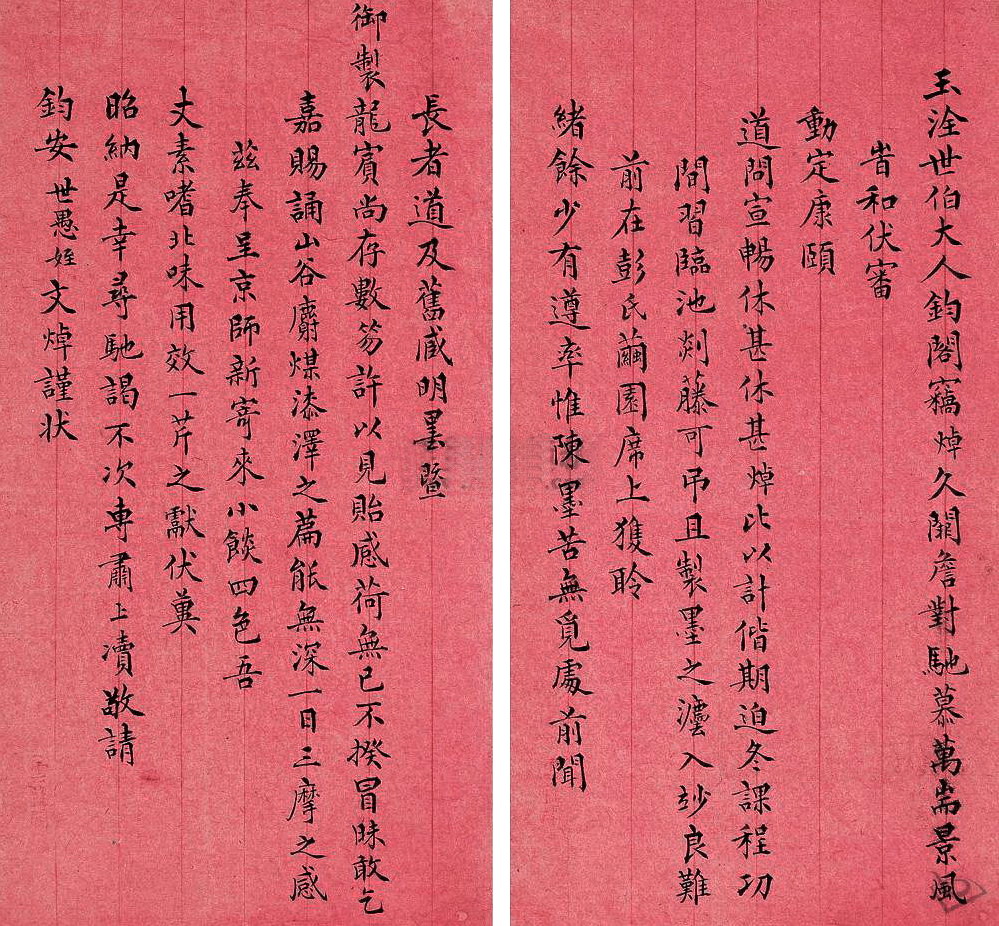 玉洤世伯大人鈞閣竊焯久闊詹對馳慕萬耑景風
旹和伏審
動定康頤
道問宣暢休甚休甚焯比以計偕期迫冬課程功
間習臨池剡藤可弔且製墨之灋入玅良難
前在彭氏繭園席上獲聆
緒餘少有遵率惟陳墨苦無覓處前聞
長者道及舊臧明墨暨
御製龍賓尚存數笏許以見貽感荷無已不揆冒昧敢乞
嘉賜誦山谷麝煤漆澤之篇能無深一日三摩之感
茲奉呈京師新寄來小餤四色吾
丈素嗜北味用效一芹之獻伏冀
昭納是幸尋馳謁不次專肅上瀆敬請
鈞安世愚姪文焯謹狀